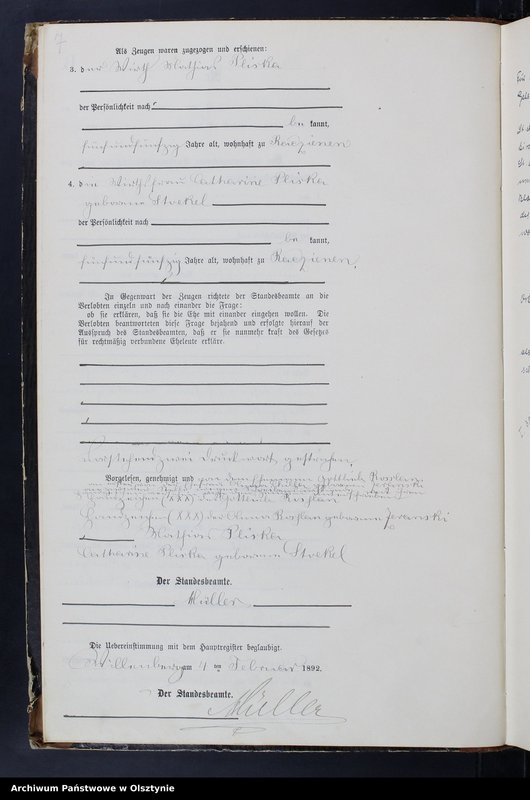 Als Zeugen waren zugezogen und erschienen:
3. der Wirth Mathias Pliska
der Persönlichkeit nach
be kannt,
fünfundfünfzig Jahre alt, wohnhaft zu Radzienen
4. die Wirthsfrau Catharine Pliska
geborene Stoekel
der Persönlichkeit nach
be kannt,
fünfundfünfzig Jahre alt, wohnhaft zu Radzienen.
In Gegenwart der Zeugen richtete der Standesbeamte an die
Verlobten einzeln und nach einander die Frage:
ob sie erklären, daß sie die Ehe mit einander eingehen wollen. Die
Verlobten beantworteten diese Frage bejahend und erfolgte hierauf der
Ausspruch des Standesbeamten, daß er sie nunmehr kraft des Gesetzes
für rechtmäßig verbundene Eheleute erkläre.
Vorstehend zwei Druckwort gestrichen.
Vorgelesen, genehmigt und von dem Ehemann Gottlieb
Handzeichen (XXX) des Gottlieb
Handzeichen (XXX) der geborene Jeranski
Mathias Pliska
Catharine Pliska geborene Stoekel
Der Standesbeamte.
Müller
Die Uebereinstimmung mit dem Hauptregister beglaubigt.
Willenberg am 4 ten Februar 1892.
Der Standesbeamte.
Müller
Archiwum Państwowe w Olsztynie